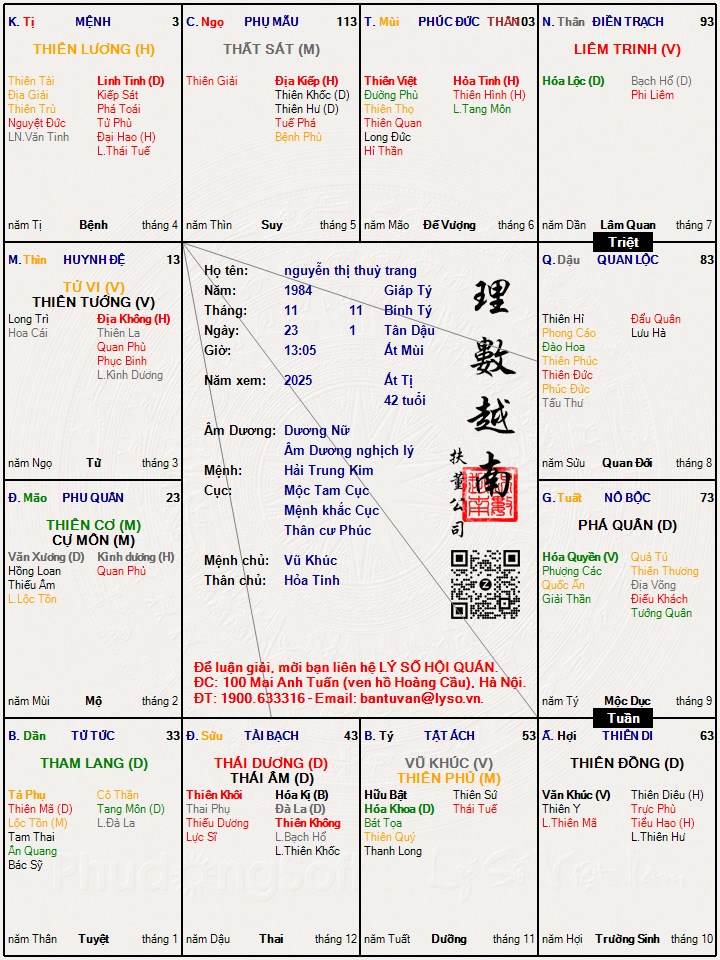 K. Tị MỆNH 3
THIÊN LƯƠNG (H)
Thiên Tài
Địa Giải
Thiên Trù
Nguyệt Đức
LN.Văn Tinh
Linh Tinh (D)
Kiếp Sát
Phá Toái
Tử Phù
Đại Hao (H)
L.Thái Tuế
năm Tị Bệnh tháng 4
C. Ngọ PHỤ MẪU 113
THẤT SÁT (M)
Thiên Giải
Địa Kiếp (H)
Thiên Khốc (D)
Thiên Hư (D)
Tuế Phá
Bệnh Phù
năm Thìn Suy tháng 5
T. Mùi PHÚC ĐỨC THÂN 103
Thiên Việt
Đường Phù
Thiên Thọ
Thiên Quan
Long Đức
Hỉ Thần
Hỏa Tinh (H)
Thiên Hình (H)
L.Tang Môn
năm Mão Đế Vượng tháng 6
N. Thân ĐIỀN TRẠCH 93
LIÊM TRINH (V)
Hóa Lộc (D)
Bạch Hổ (D)
Phi Liêm
năm Dần Lâm Quan tháng 7
Triệt
M. Thìn HUYNH ĐỆ 13
TỬ VI (V)
THIÊN TƯỚNG (V)
Long Trì
Hoa Cái
Địa Không (H)
Thiên La
Quan Phù
Phục Binh
L.Kình Dương
năm Ngọ Tử tháng 3
Họ tên: nguyễn thị thuỳ trang
Năm: 1984 Giáp Tý
Tháng: 11 11 Bính Tý
Ngày: 23 1 Tân Dậu
Giờ: 13:05 Ất Mùi
Năm xem: 2025 Ất Tị
42 tuổi
Âm Dương: Dương Nữ
Âm Dương nghịch lý
Mệnh: Hải Trung Kim
Cục: Mộc Tam Cục
Mệnh khắc Cục
Thân cư Phúc
Mệnh chủ: Vũ Khúc
Thân chủ: Hỏa Tinh
理數越南
扶董公司
Để luận giải, mời bạn liên hệ LÝ SỐ HỘI QUÁN.
ĐC: 100 Mai Anh Tuấn (ven hồ Hoàng Cầu), Hà Nội.
ĐT: 1900.633316 - Email: bantuvan@lyso.vn.
Q. Dậu QUAN LỘC 83
Thiên Hỉ
Phong Cáo
Đào Hoa
Thiên Phúc
Thiên Đức
Phúc Đức
Tấu Thư
Đẩu Quân
Lưu Hà
năm Sửu Quan Đới tháng 8
Đ. Mão PHU QUÂN 23
THIÊN CƠ (M)
CỰ MÔN (M)
Văn Xương (D)
Hồng Loan
Thiếu Âm
L.Lộc Tồn
Kình dương (H)
Quan Phủ
năm Mùi Mộ tháng 2
G. Tuất NÔ BỘC 73
PHÁ QUÂN (D)
Hóa Quyền (V)
Phượng Các
Quốc Ấn
Giải Thần
Quả Tú
Thiên Thương
Địa Võng
Điếu Khách
Tướng Quân
năm Tý Mộc Dục tháng 9
Tuần
B. Dần TỬ TỨC 33
THAM LANG (D)
Tả Phụ
Thiên Mã (D)
Lộc Tồn (M)
Tam Thai
Ân Quang
Bác Sỹ
Cô Thần
Tang Môn (D)
L.Đà La
năm Thân Tuyệt tháng 1
Đ. Sửu TÀI BẠCH 43
THÁI DƯƠNG (D)
THÁI ÂM (D)
Thiên Khôi
Thai Phụ
Thiếu Dương
Lực Sĩ
Hóa Kị (B)
Đà La (D)
Thiên Không
L.Bạch Hổ
L.Thiên Khốc
năm Dậu Thai tháng 12
B. Tý TẬT ÁCH 53
VŨ KHÚC (V)
THIÊN PHỦ (M)
Hữu Bật
Hóa Khoa (D)
Bát Tọa
Thiên Quý
Thanh Long
Thiên Sứ
Thái Tuế
năm Tuất Dưỡng tháng 11
Ấ. Hợi THIÊN DI 63
THIÊN ĐỒNG (D)
Văn Khúc (V)
Thiên Y
L.Thiên Mã
Thiên Diêu (H)
Trực Phù
Tiểu Hao (H)
L.Thiên Hư
năm Hợi Trường Sinh tháng 10